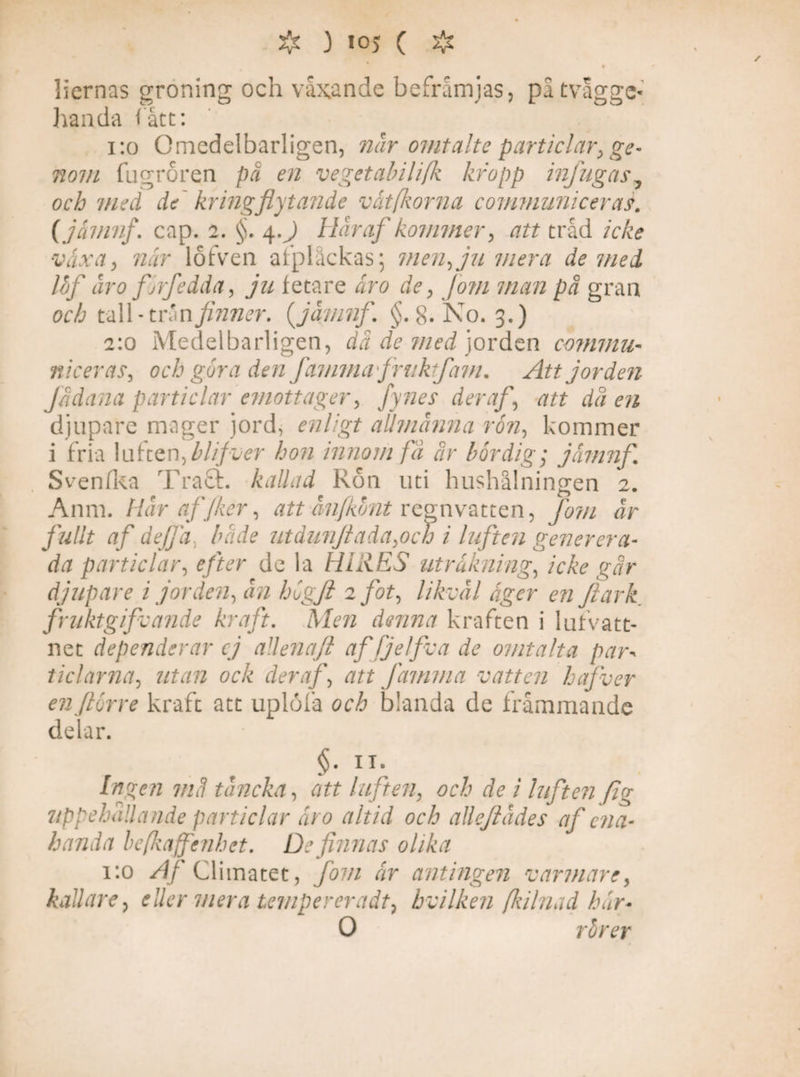 ☆ ) 105 ( ☆
liernas gröning och växande befrämjas, på tvägge-
handa ſätt:
1:o Omedelbarligen, når omtalte particlar, ge-
nom ſugrören på en vegetabiliſk kropp inſugas,
och med de kringflytande våtſkorna communiceras.
(jåmnf. cap. 2. §. 4.) Håraf kommer, att tråd icke
våxa, når löfven afplåckas; men, ju mera de med
löf åro förſedda, ju fetare åro de, ſom man på gran
och tall-trån finner. (jåmnf. §. 8. No. 3.)
2:o Medelbarligen, då de med jorden commu-
niceras, och göra den ſamma fruktſam. Att jorden
ſådana particlar emottager, ſynes deraf, att då en
djupare mager jord, enligt allmånna rön, kommer
i fria luften, blifver hon innom få år bördig; jåmnf.
Svenſka Tract. kallad Rön uti hushålningen 2.
Anm. Hår af ſker, att ånſkönt regnvatten, ſom år
fullt af deſſa, både utdunſtada, och i luften generera-
da particlar, efter de la HIRES utråkning, icke går
djupare i jorden, ån högſt 2 fot, likvål åger en ſtark
fruktgifvande kraft. Men denna kraften i lufvatt-
net dependerar ej allenaſt af ſjelfva de omtalta par-
ticlarna, utan ock deraf, att ſamma vatten hafver
en ſtörre kraft att uplöſa och blanda de fråmmande
delar.
§. 11.
Ingen må tåncka, att luften, och de i luften ſig
uppehållande particlar åro altid och alleſtådes af ena-
handa beſkaffenhet. De finnas olika
1:o Af Climatet, ſom år antingen varmare,
kallare, eller mera tempereradt, hvilken ſkilnad hår-
O rörer